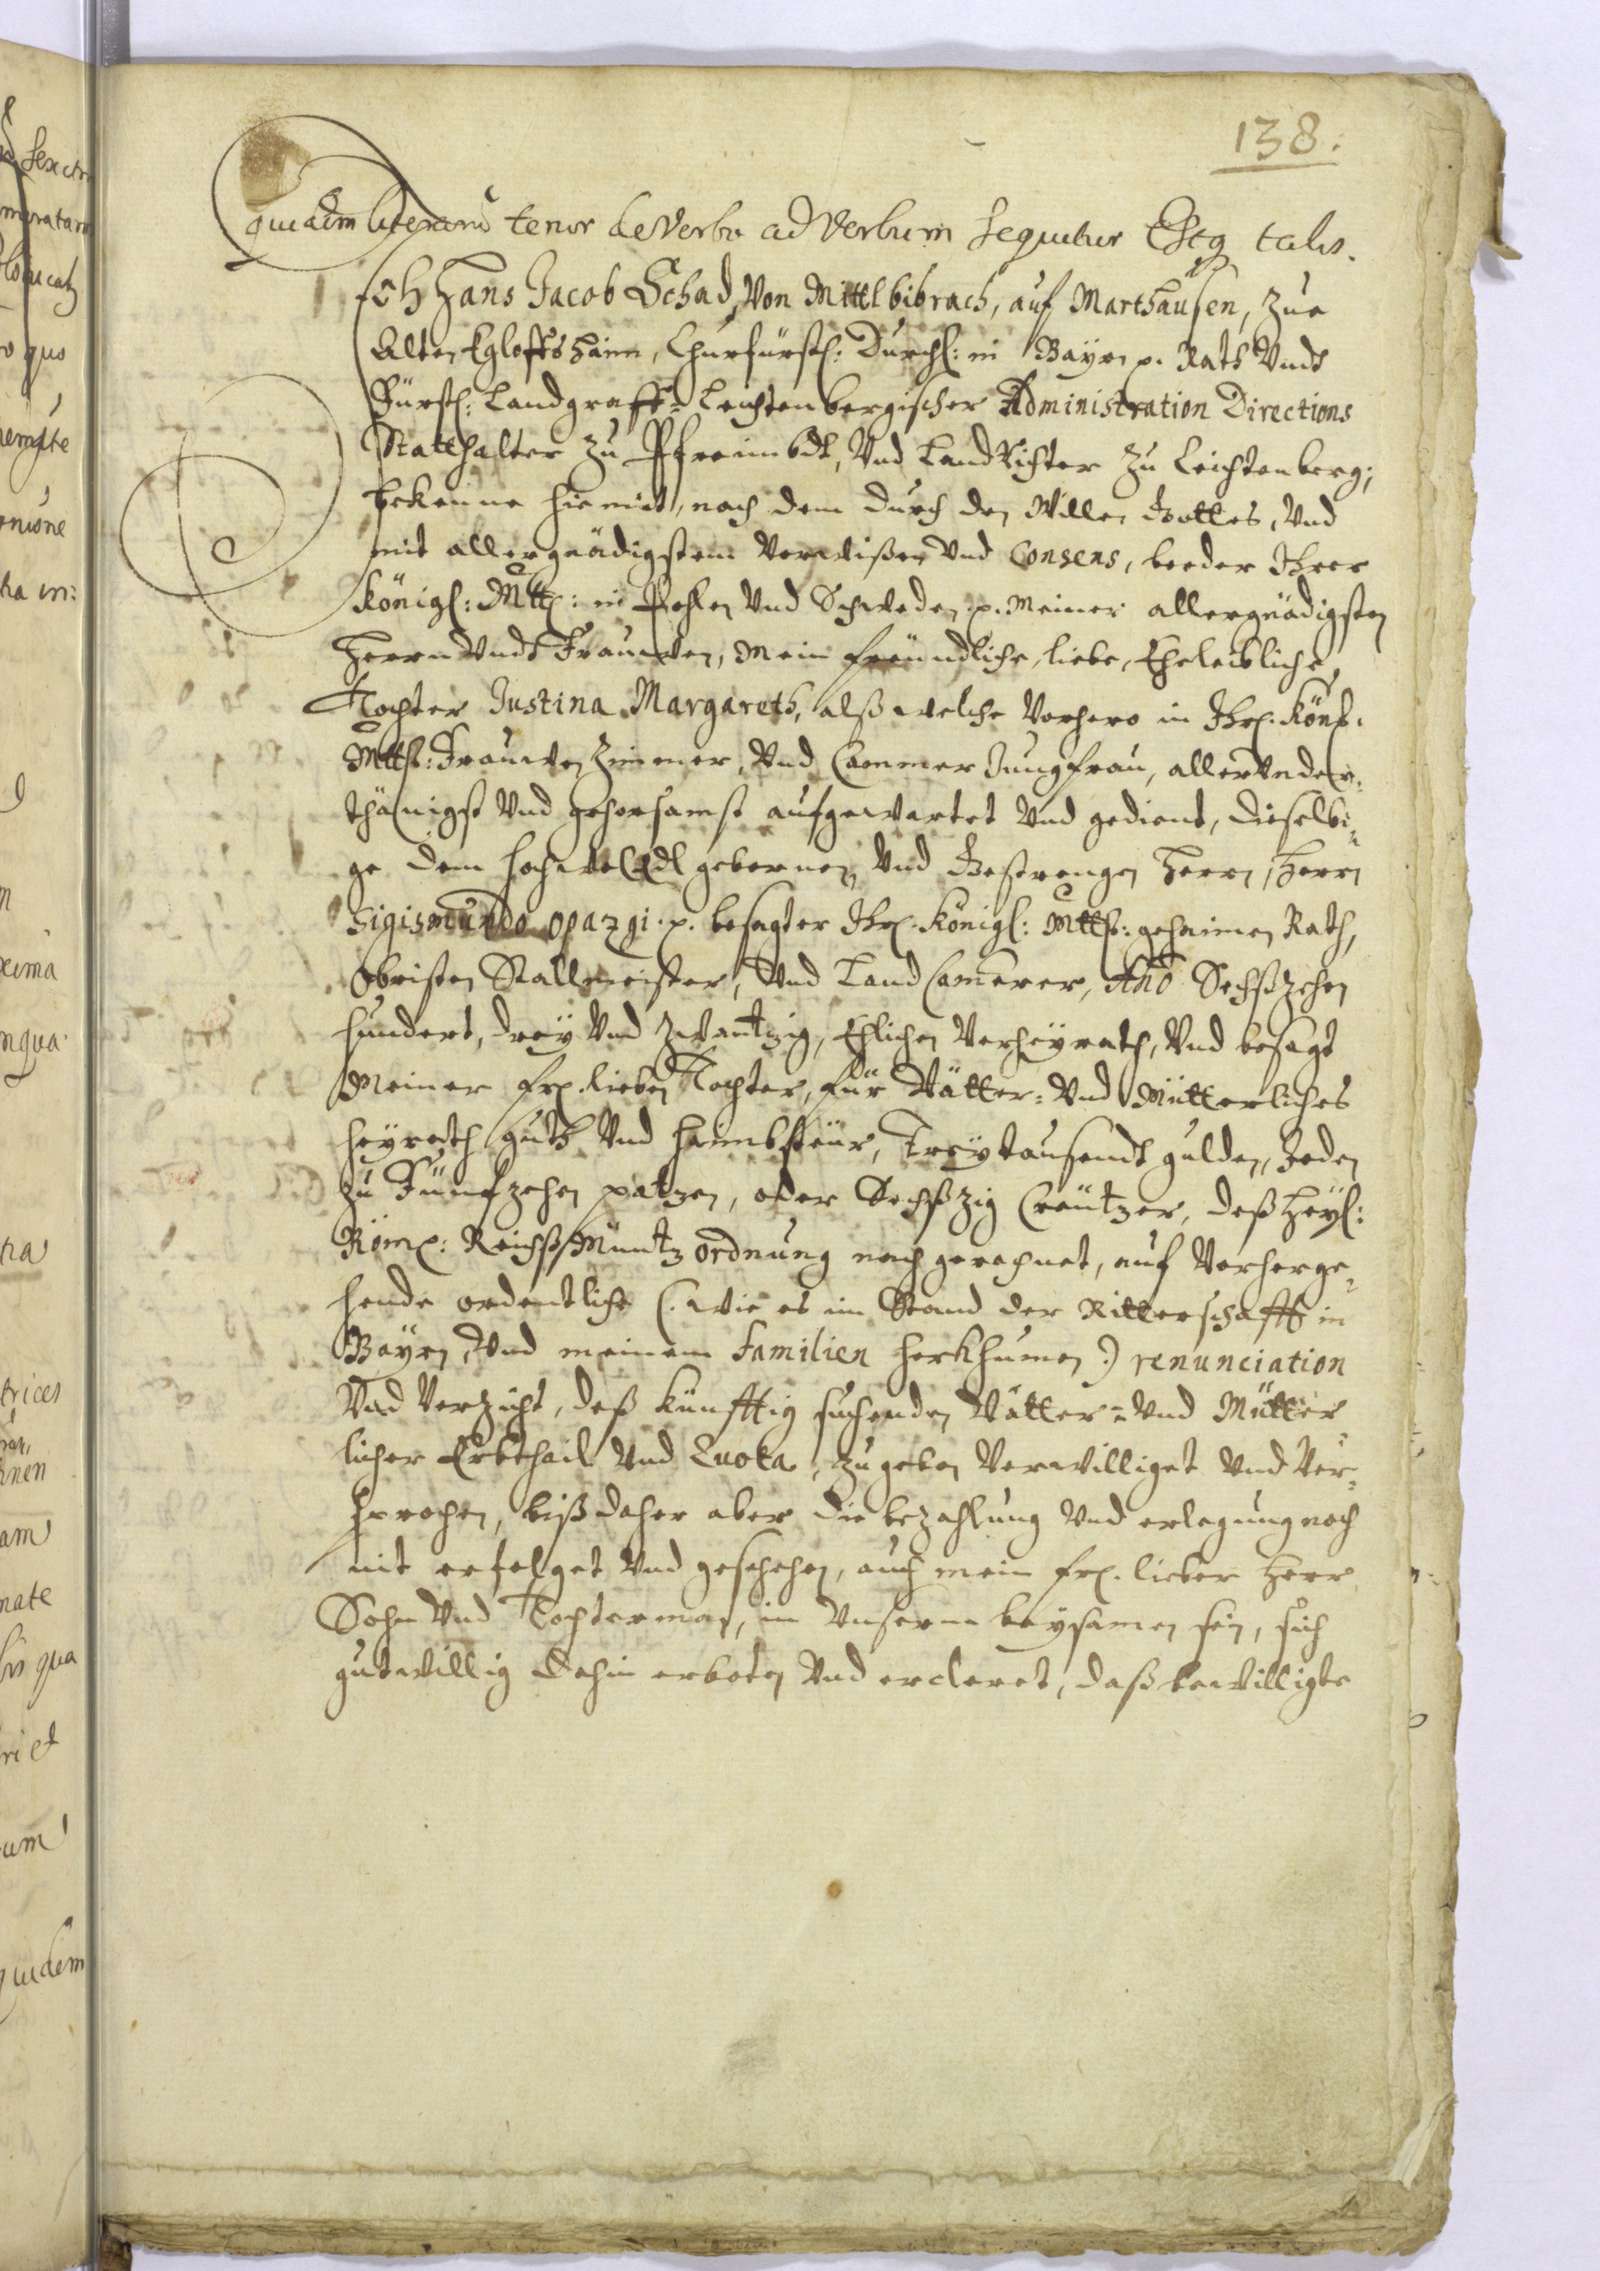 138.
quarum literarum tenor de verbo ad verbum sequitur Estq talis.
Ich Hans Jacob Schad, Von Mittlbibrach, auf Marthausen, Zue
Alten Egloffshaim, Churfürstl: Durchl: in Bayrn p. Rath Vndt
Fürstl: Landgraff= Leichtenbergischer Administration Directions
Statthalter zu Pfreimbdt, Vnd LandRichter zu Leichtenberg;
bekenne hiemit, nach dem durch den Willen Gottes, Vnd
mit allergnädigstem Vorwißen Vnd Consens, beeder Ihrer
Königl: Mtt: in Pohlen Vnd Schweden p. Meiner allergnädigsten
Herrn Vndt Frauwen, Mein freundliche, liebe, Eheleibliche
Tochter Justina Margareth, alß welche Vorhero in Ihr. Könl:
Mtt: Frauwen Zimmer, Vnd Cammer Jungfrau, allerVnder=
thänigst Vnd gehorsamst aufgewartet Vnd gedient, dieselbi=
ge dem hochwolEdlgebornen, Vnd Gestrengen Herrn, Herrn
Sigismundo Opazgi. p. besagter Ihr. Königl: Mtt: gehaimen Rath,
Obristen Stallmeister, Vnd Land Camerer, Anō Sechßzehen
hundert, drey Vnd Zwantzig, Ehlichen Verheyrath, Vnd besagt
Meiner frl. lieben Tochter, für Vätter= Vnd Mütterliches
heyrath guth Vnd haimbsteur, Treytausendt gulden, Jeden
zu Fünfzehen patzen, oder Sechßzig Creützer, deß Heyl:
Röm: Reichß Müntz ordnung nach gerechnet, auf Vorherge=
hende ordentliche (: wie es im Stand der Ritterschafft in
Bayrn, Vnd meinem Familien herkhumen :) renunciation
Vnd Verzicht, deß künfftig suchenden Vätter= Vnd Mütter
licher Erbthail Vnd Quota, zu geben Verwilliget Vnd Ver=
sprochen, biß daher aber die bezahlung Vnd erlegung noch
nit erfolget Vnd geschehen, auch mein frl. lieber Herr
Sohn Vnd Tochterman, in Vnserm beysamen sein, sich
gutwillig dahin erboten Vnd ercleret, daß bewilligte